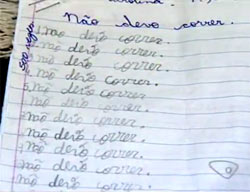 Não devo correr.
500 vezes
não devo correr.
não devo correr.
não devo correr.
não devo correr.
não devo correr.
não devo correr.
não devo correr.
não devo correr.
não devo correr.
não devo correr.
não devo correr.